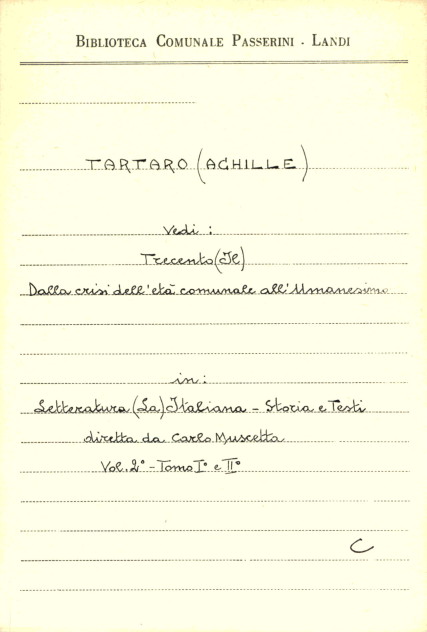 BIBLIOTECA COMUNALE PASSERINI - LANDI
TARTARO (ACHILLE)
Vedi :
Trecento (Il)
Dalla crisi dell'età comunale all'Umanesimo
in:
Letteratura (La) Italiana - Storia e Testi
diretta da Carlo Muscetta
Vol. 2° - Tomo I° e II°
C